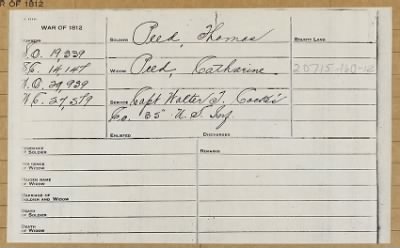 OF 1812
WAR OF 1812
SOLDIER Peed, Thomas
BOUNTY LAND
S.O. 19,339
S.C. 14,147
WIDOW Peed, Catharine
20715-160-12
W.O. 29,939
W.C. 27,579
SERVICE Capt Walter J. Cocke's
Co. 35" U.S. Inf
ENLISTED DISCHARGED
RESIDENCE OF SOLDIER
REMARKS
RESIDENCE OF WIDOW
MAIDEN NAME OF WIDOW
MARRIAGE OF SOLDIER AND WIDOW
DEATH OF SOLDIER
DEATH OF WIDOW